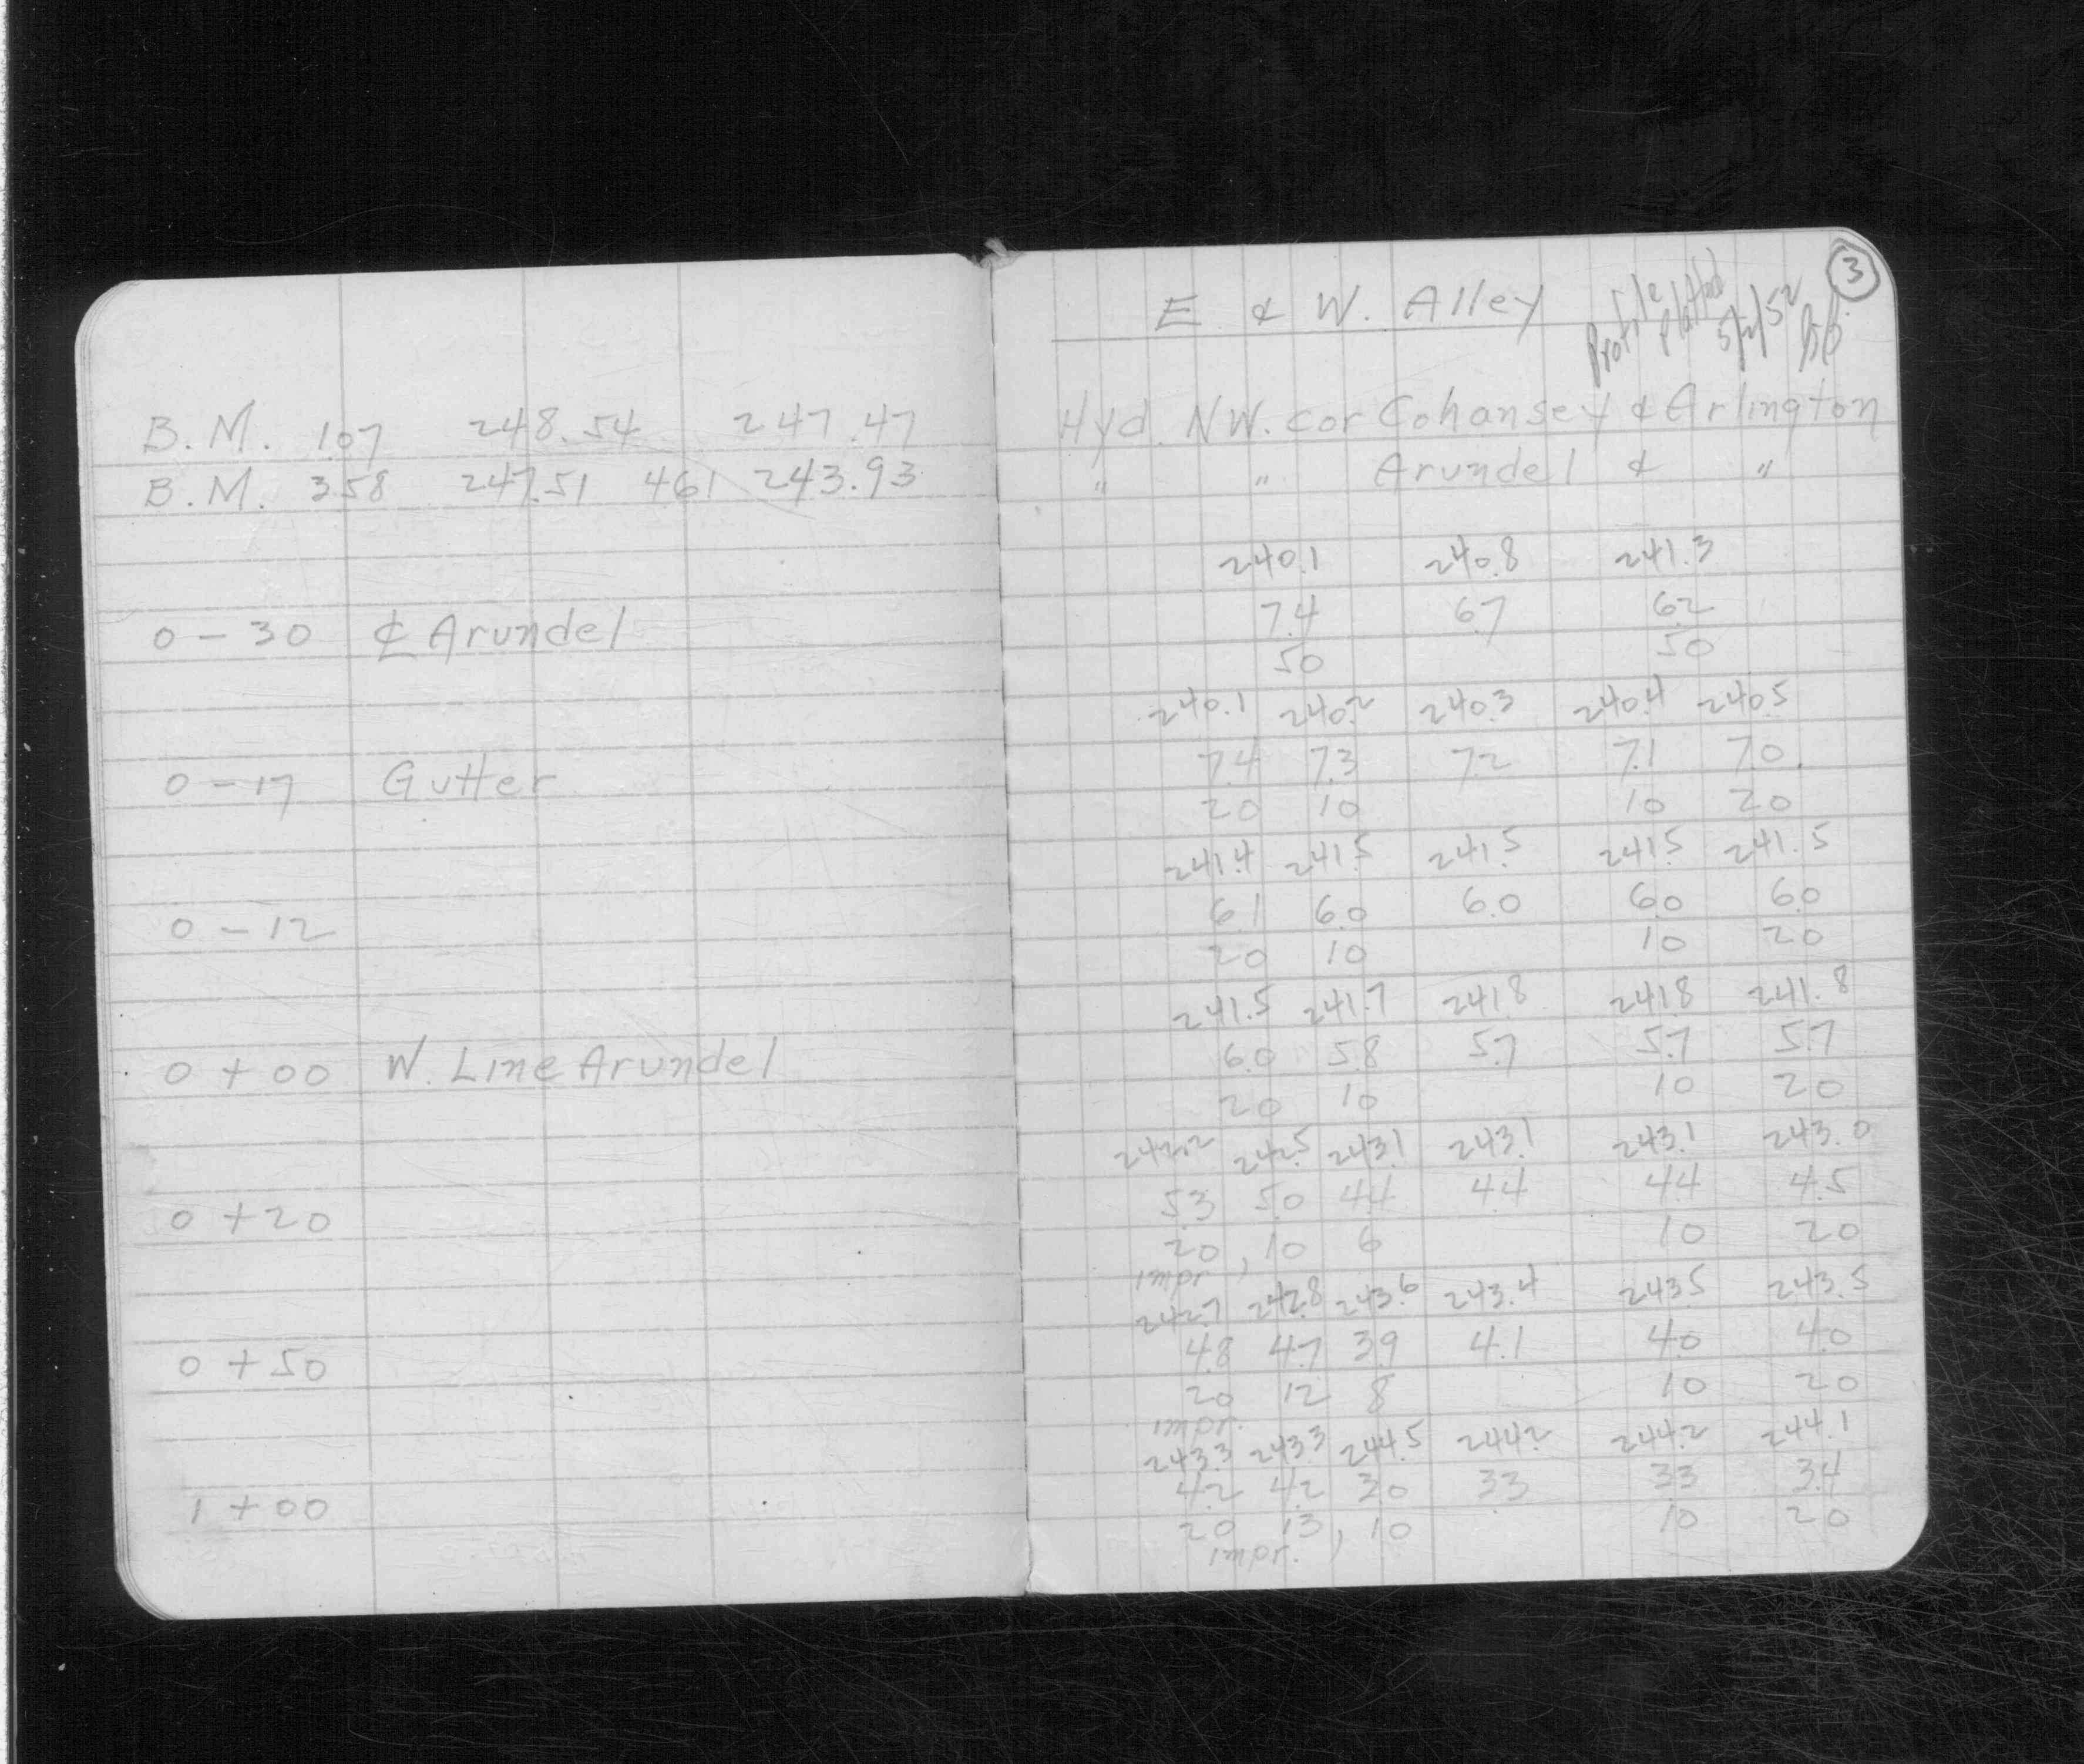 B.M. 1.07 248.54 247.47
B.M. 3.58 247.51 4.61 243.93
0 - 30 ℄ Arundel
0 - 17 Gutter
0 - 12
0 + 00 W. Line Arundel
0 + 20
0 + 50
1 + 00
3
E & W. Alley
Profile Platted 5/2/52
Hyd. NW. cor Cohansey & Arlington
" " Arundel & "
240.1 240.8 241.3
7.4 6.7 6.2
50 50
240.1 240.2 240.3 240.4 240.5
7.4 7.3 7.2 7.1 7.0
20 10 10 20
241.4 241.5 241.5 241.5 241.5
6.1 6.0 6.0 6.0 6.0
20 10 10 20
241.5 241.7 241.8 241.8 241.8
6.0 5.8 5.7 5.7 5.7
20 10 10 20
242.2 242.5 243.1 243.1 243.1 243.0
5.3 5.0 4.4 4.4 4.4 4.5
20, 10 6 10 20
impr.
242.7 242.8 243.6 243.4 243.5 243.5
4.8 4.7 3.9 4.1 4.0 4.0
20 12 8 10 20
impr.
243.3 243.3 244.5 244.2 244.2 244.1
4.2 4.2 3.0 3.3 3.3 3.4
20 13, 10 10 20
impr.